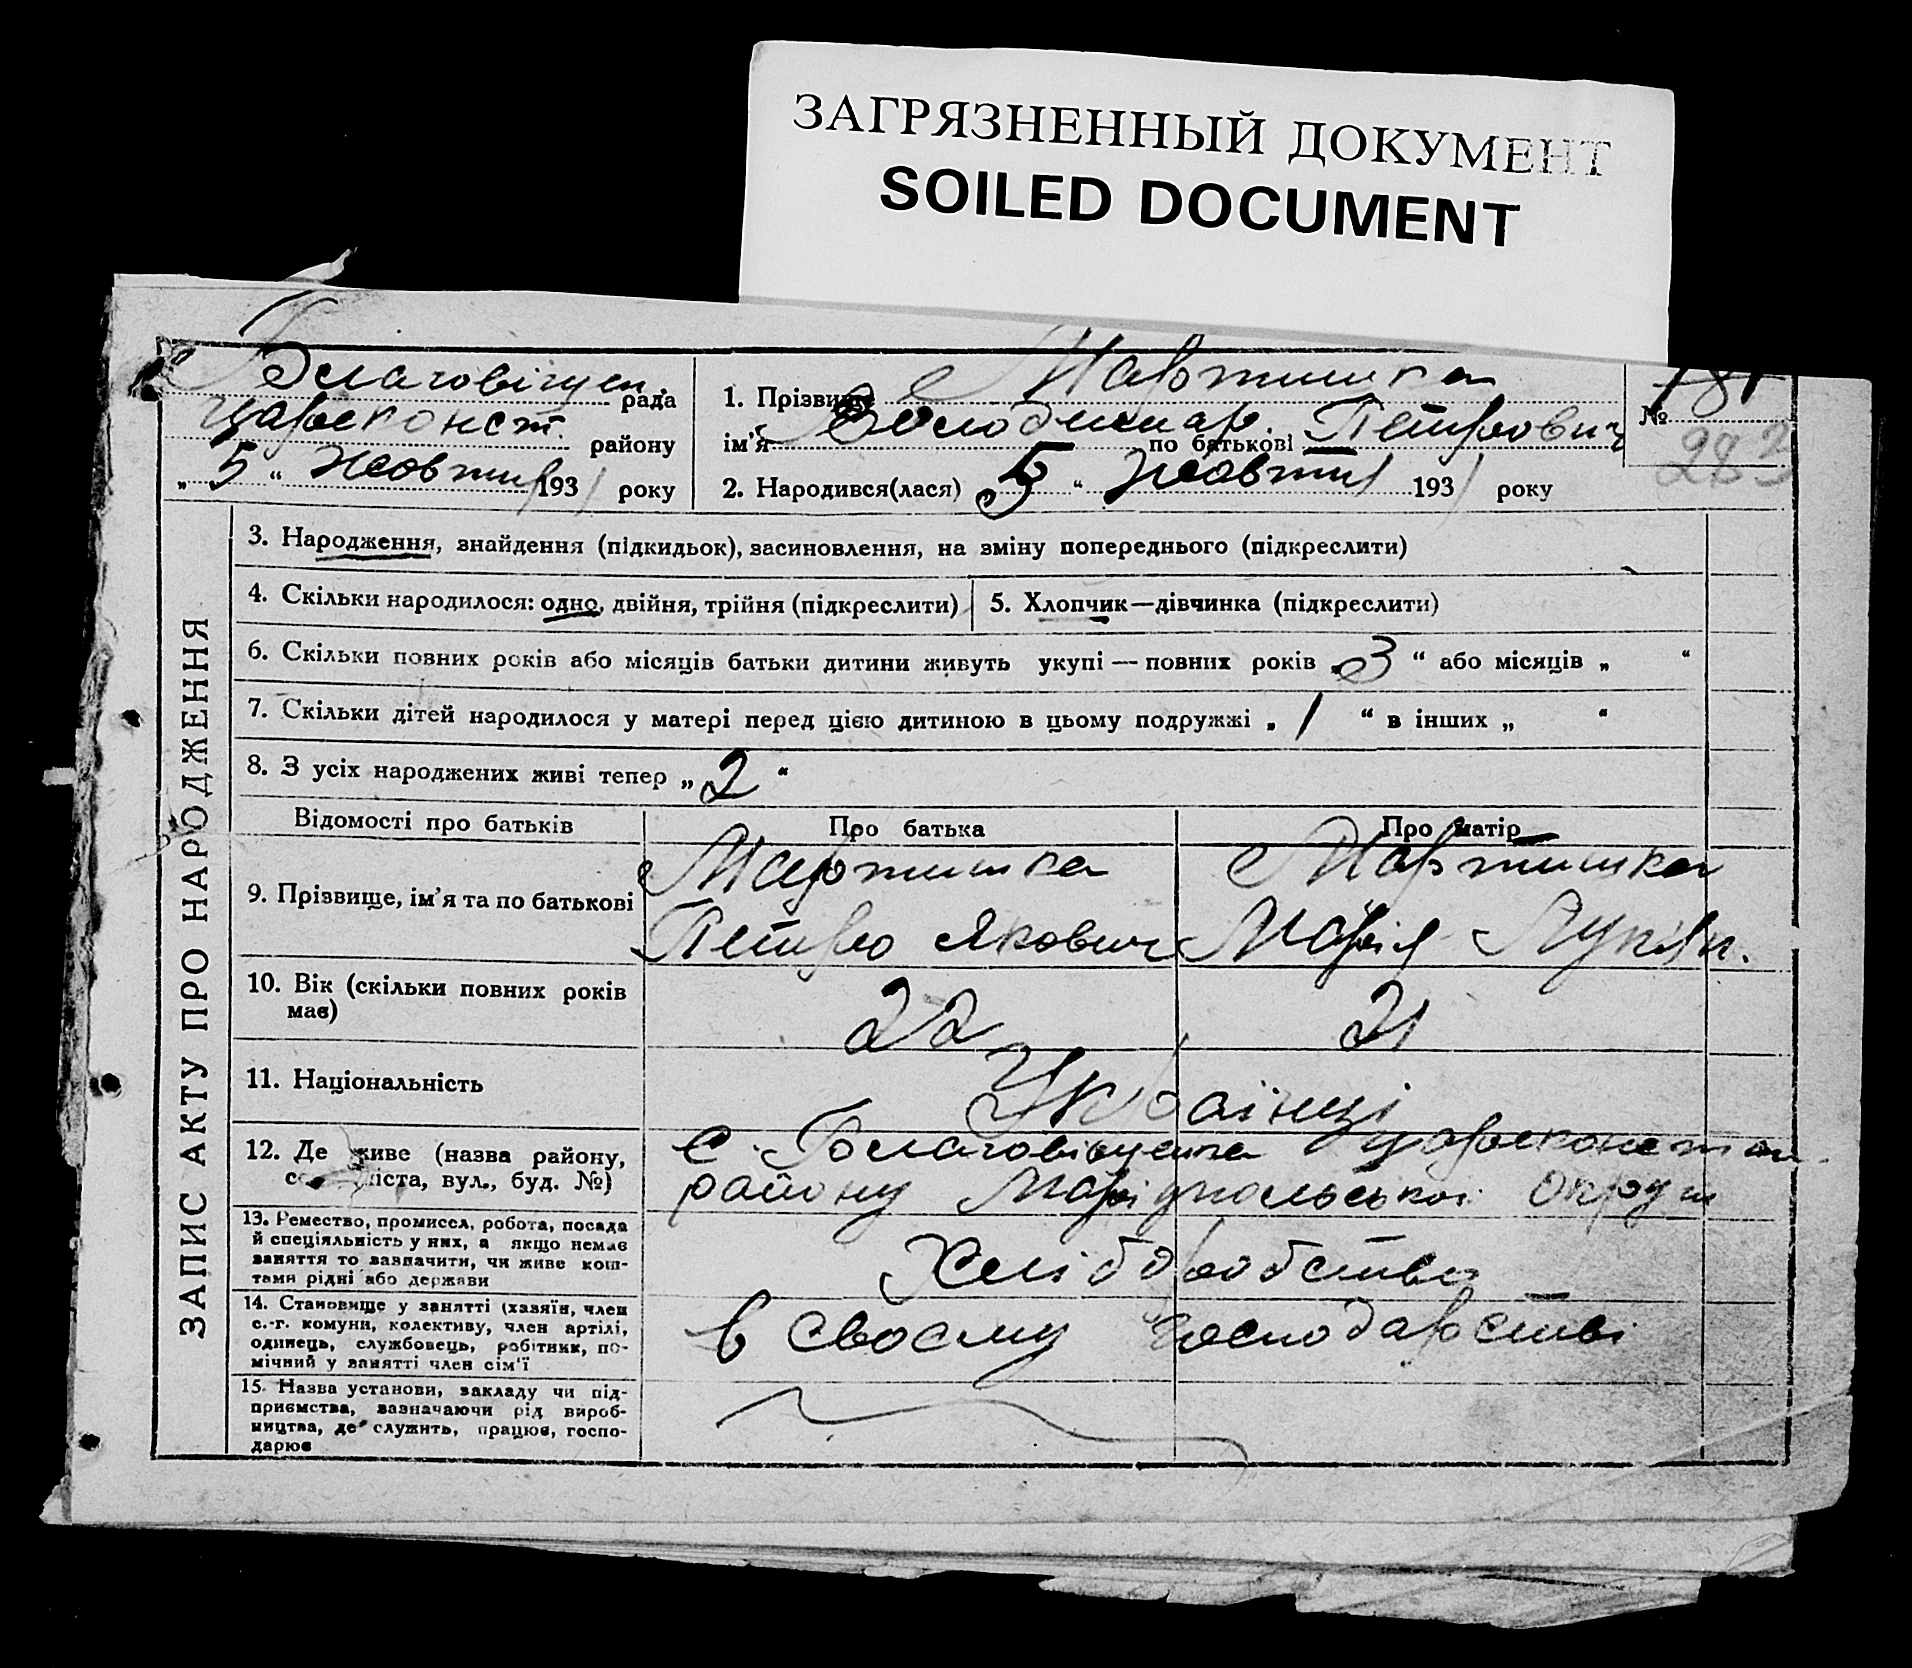 ЗАГРЯЗНЕННЫЙ ДОКУМЕНТ
SOILED DOCUMENT
Благовіщен. рада
Цареконст. району
„ 5 “ Жовтня 1931 року
1. Прізвище Мартишка
ім’я Володимир. по батькові Петрович
2. Народився(лася) „ 5 “ Жовтня 1931 року
№ 181
282
ЗАПИС АКТУ ПРО НАРОДЖЕННЯ
3. Народження, знайдення (підкидьок), засиновлення, на зміну попереднього (підкреслити)
4. Скільки народилося: одно, двійня, трійня (підкреслити)
5. Хлопчик—дівчинка (підкреслити)
6. Скільки повних років або місяців батьки дитини живуть укупі — повних років „ 3 “ або місяців „ “
7. Скільки дітей народилося у матері перед цією дитиною в цьому подружжі „ 1 “ в інших „ “
8. З усіх народжених живі тепер „ 2 “
Відомості про батьків
Про батька
Про матір
9. Прізвище, ім’я та по батькові
Мартишка
Петро Якович
Мартишка
Марія Лукян.
10. Вік (скільки повних років
має)
22
21
11. Національність
Українці
12. Де живе (назва району,
міста, вул., буд. №)
с. Благовіщенка Цареконстан.
району Маріупольської Округи
13. Ремество, промисел, робота, посада
й спеціяльність у них, а якщо немає
заняття то зазначити, чи живе кош-
тами рідні або держави
Хліборобство
14. Становище у занятті (хазяїн, член
с.-г. комуни, колективу, член артілі,
одинець, службовець, робітник, по-
мічний у занятті член сім’ї
в своєму господарстві
15. Назва установи, закладу чи під-
приємства, зазначаючи рід вироб-
ництва, де служить, працює, госпо-
дарює